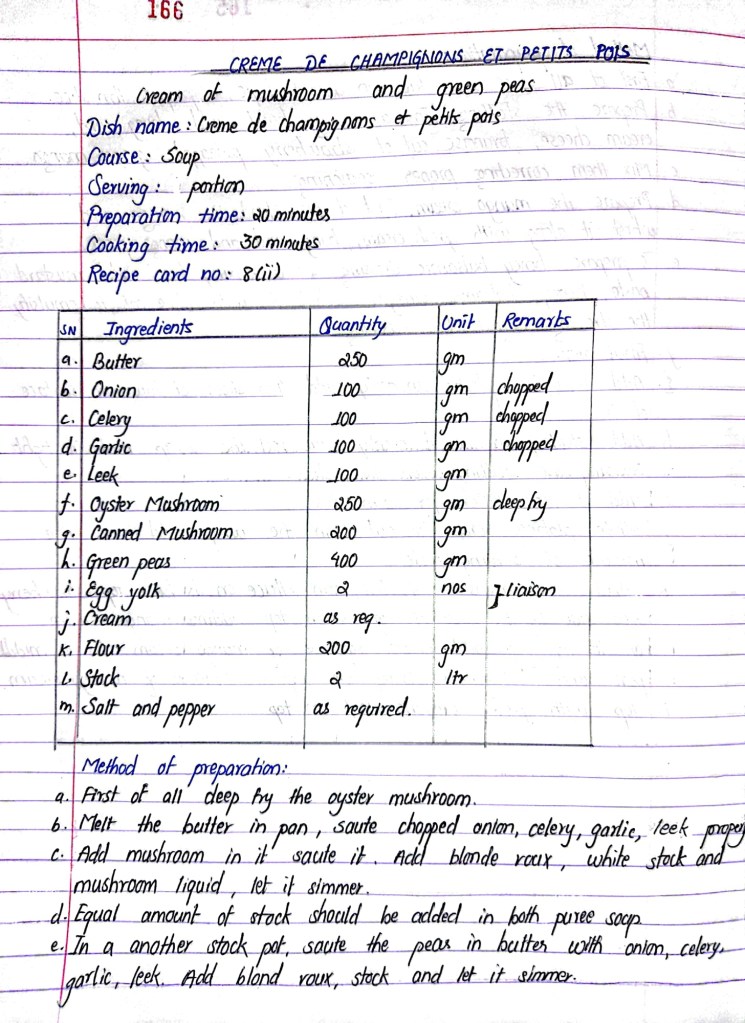 166
CREME DE CHAMPIGNONS ET PETITS POIS
Cream of mushroom and green peas
Dish name : Creme de champignons et petits pois
Course : Soup
Serving : portion
Preparation time : 20 minutes
Cooking time : 30 minutes
Recipe card no : 8(ii)
SN Ingredients Quantity Unit Remarks
a. Butter 250 gm
b. Onion 100 gm chopped
c. Celery 100 gm chopped
d. Garlic 100 gm chopped
e. Leek 100 gm
f. Oyster Mushroom 250 gm deep fry
g. Canned Mushroom 200 gm
h. Green peas 400 gm
i. Egg yolk 2 nos } liaison
j. Cream as req.
k. Flour 200 gm
l. Stock 2 ltr
m. Salt and pepper as required.
Method of preparation:
a. First of all deep fry the oyster mushroom.
b. Melt the butter in pan, saute chopped onion, celery, garlic, leek
c. Add mushroom in it saute it. Add blonde roux, white stock and
mushroom liquid, let it simmer.
d. Equal amount of stock should be added in both puree soup
e. In a another stock pot, saute the peas in butter with onion, celery,
garlic, leek. Add blond roux, stock and let it simmer.